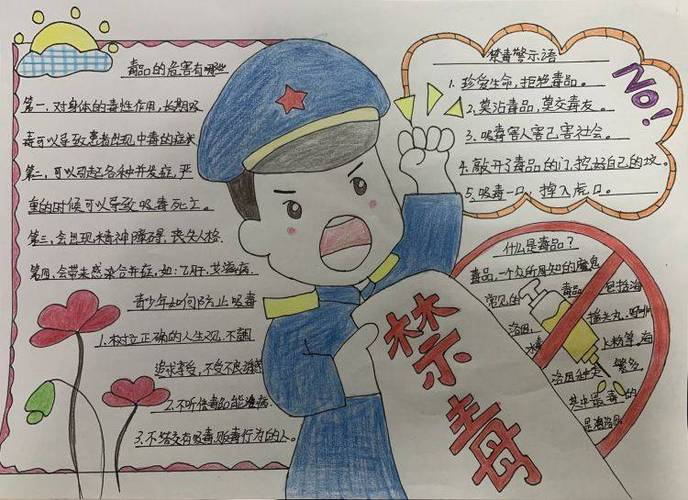 毒品的危害有哪些
第一、对身体的毒性作用，长期吸
毒可以导致患者出现中毒的症状
第二、可以引起各种并发症，严
重的时候可以导致吸毒死亡。
第三、会出现精神障碍，丧失人格.
第四、会带来感染合并症，如：乙肝，艾滋病.
青少年如何防止吸毒
1.树立正确的人生观，不盲
追求享受，不受不良
2.不听信毒品能治病.
3.不结交有吸毒贩毒行为的人。
禁毒
禁毒警示语
1.珍爱生命，拒绝毒品。
2.莫沾毒品，莫交毒友。
3.吸毒害人害己害社会。
4.敲开了毒品的门，挖好自己的坟。
5.吸毒一口，掉入虎口。
NO!
什么是毒品？
毒品，一个众所周知的魔鬼
常见的 毒品 包括冶
冰毒
上粉等，海
洛因种类 繁多
其中最毒的
是海洛因